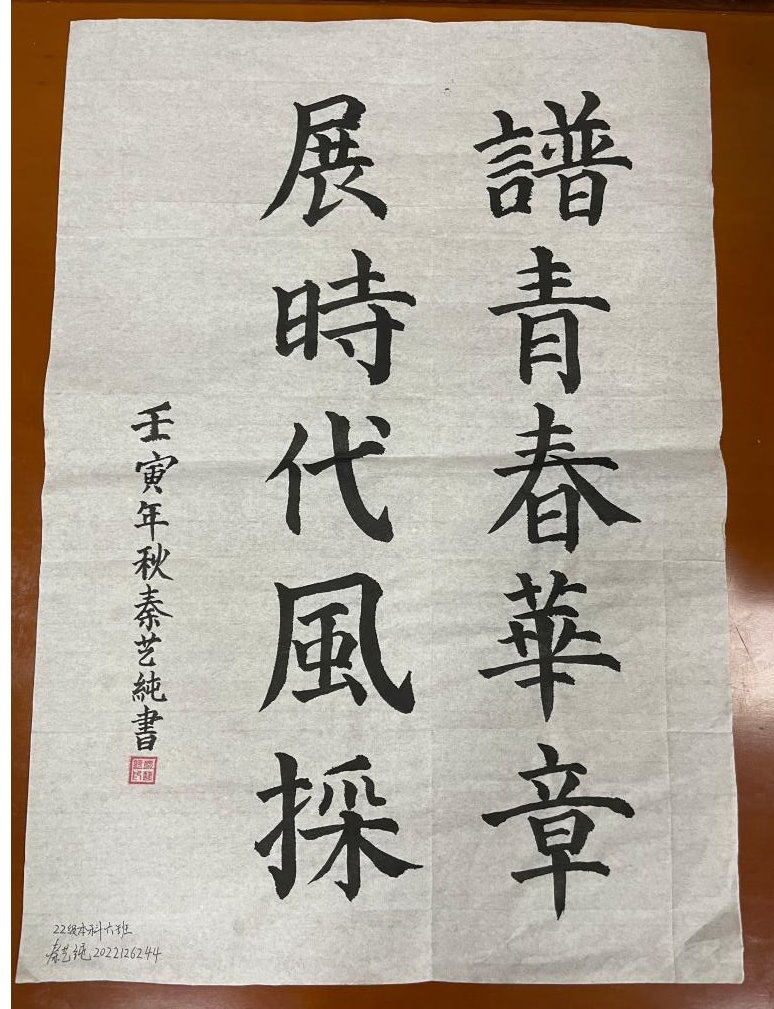 譜青春華章
展時代風採
壬寅年秋秦艺純書
22级本科六班
秦艺纯 2022126244